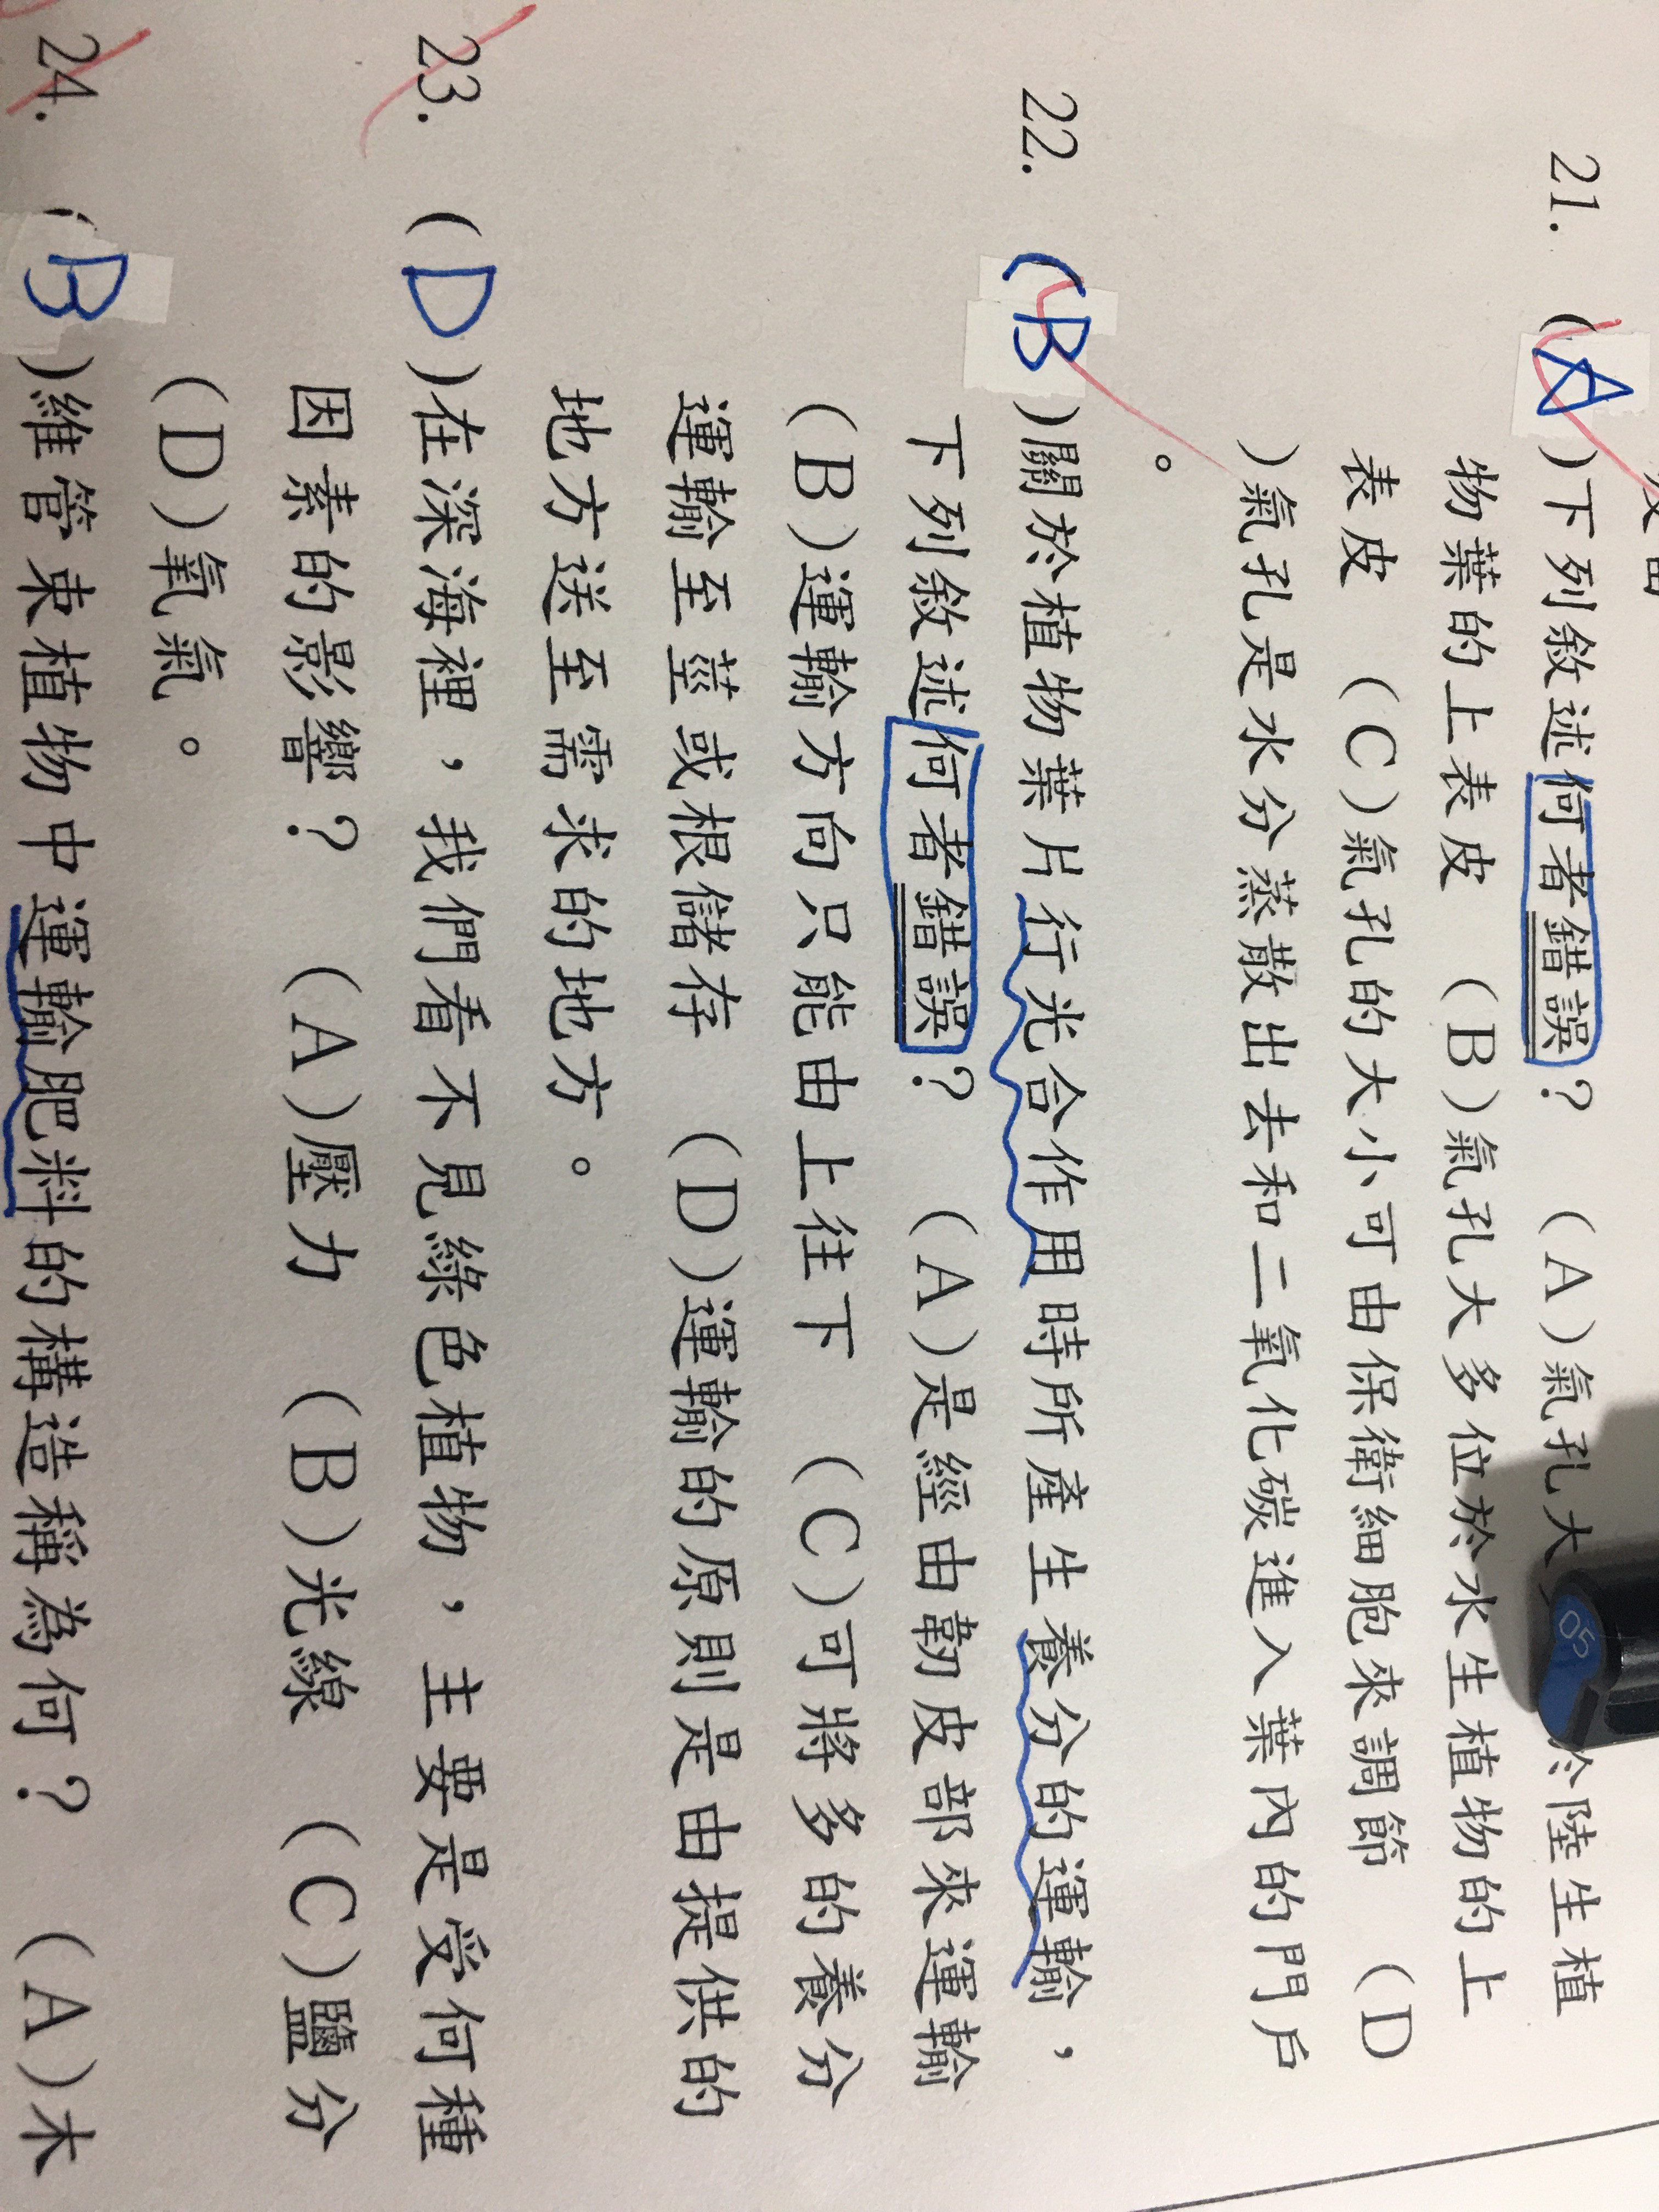 21. (A)下列敘述何者錯誤? (A)氣孔大 陸生植
物葉的上表皮 (B)氣孔大多位於水生植物的上
表皮 (C)氣孔的大小可由保衛細胞來調節 (D
)氣孔是水分蒸散出去和二氧化碳進入葉內的門戶
。
22. (B)關於植物葉片行光合作用時所產生養分的運輸,
下列敘述何者錯誤? (A)是經由韌皮部來運輸
(B)運輸方向只能由上往下 (C)可將多的養分
運輸至莖或根儲存 (D)運輸的原則是由提供的
地方送至需求的地方。
23. (D)在深海裡,我們看不見綠色植物,主要是受何種
因素的影響? (A)壓力 (B)光線 (C)鹽分
(D)氧氣。
24. (B)維管束植物中運輸肥料的構造稱為何? (A)木
05